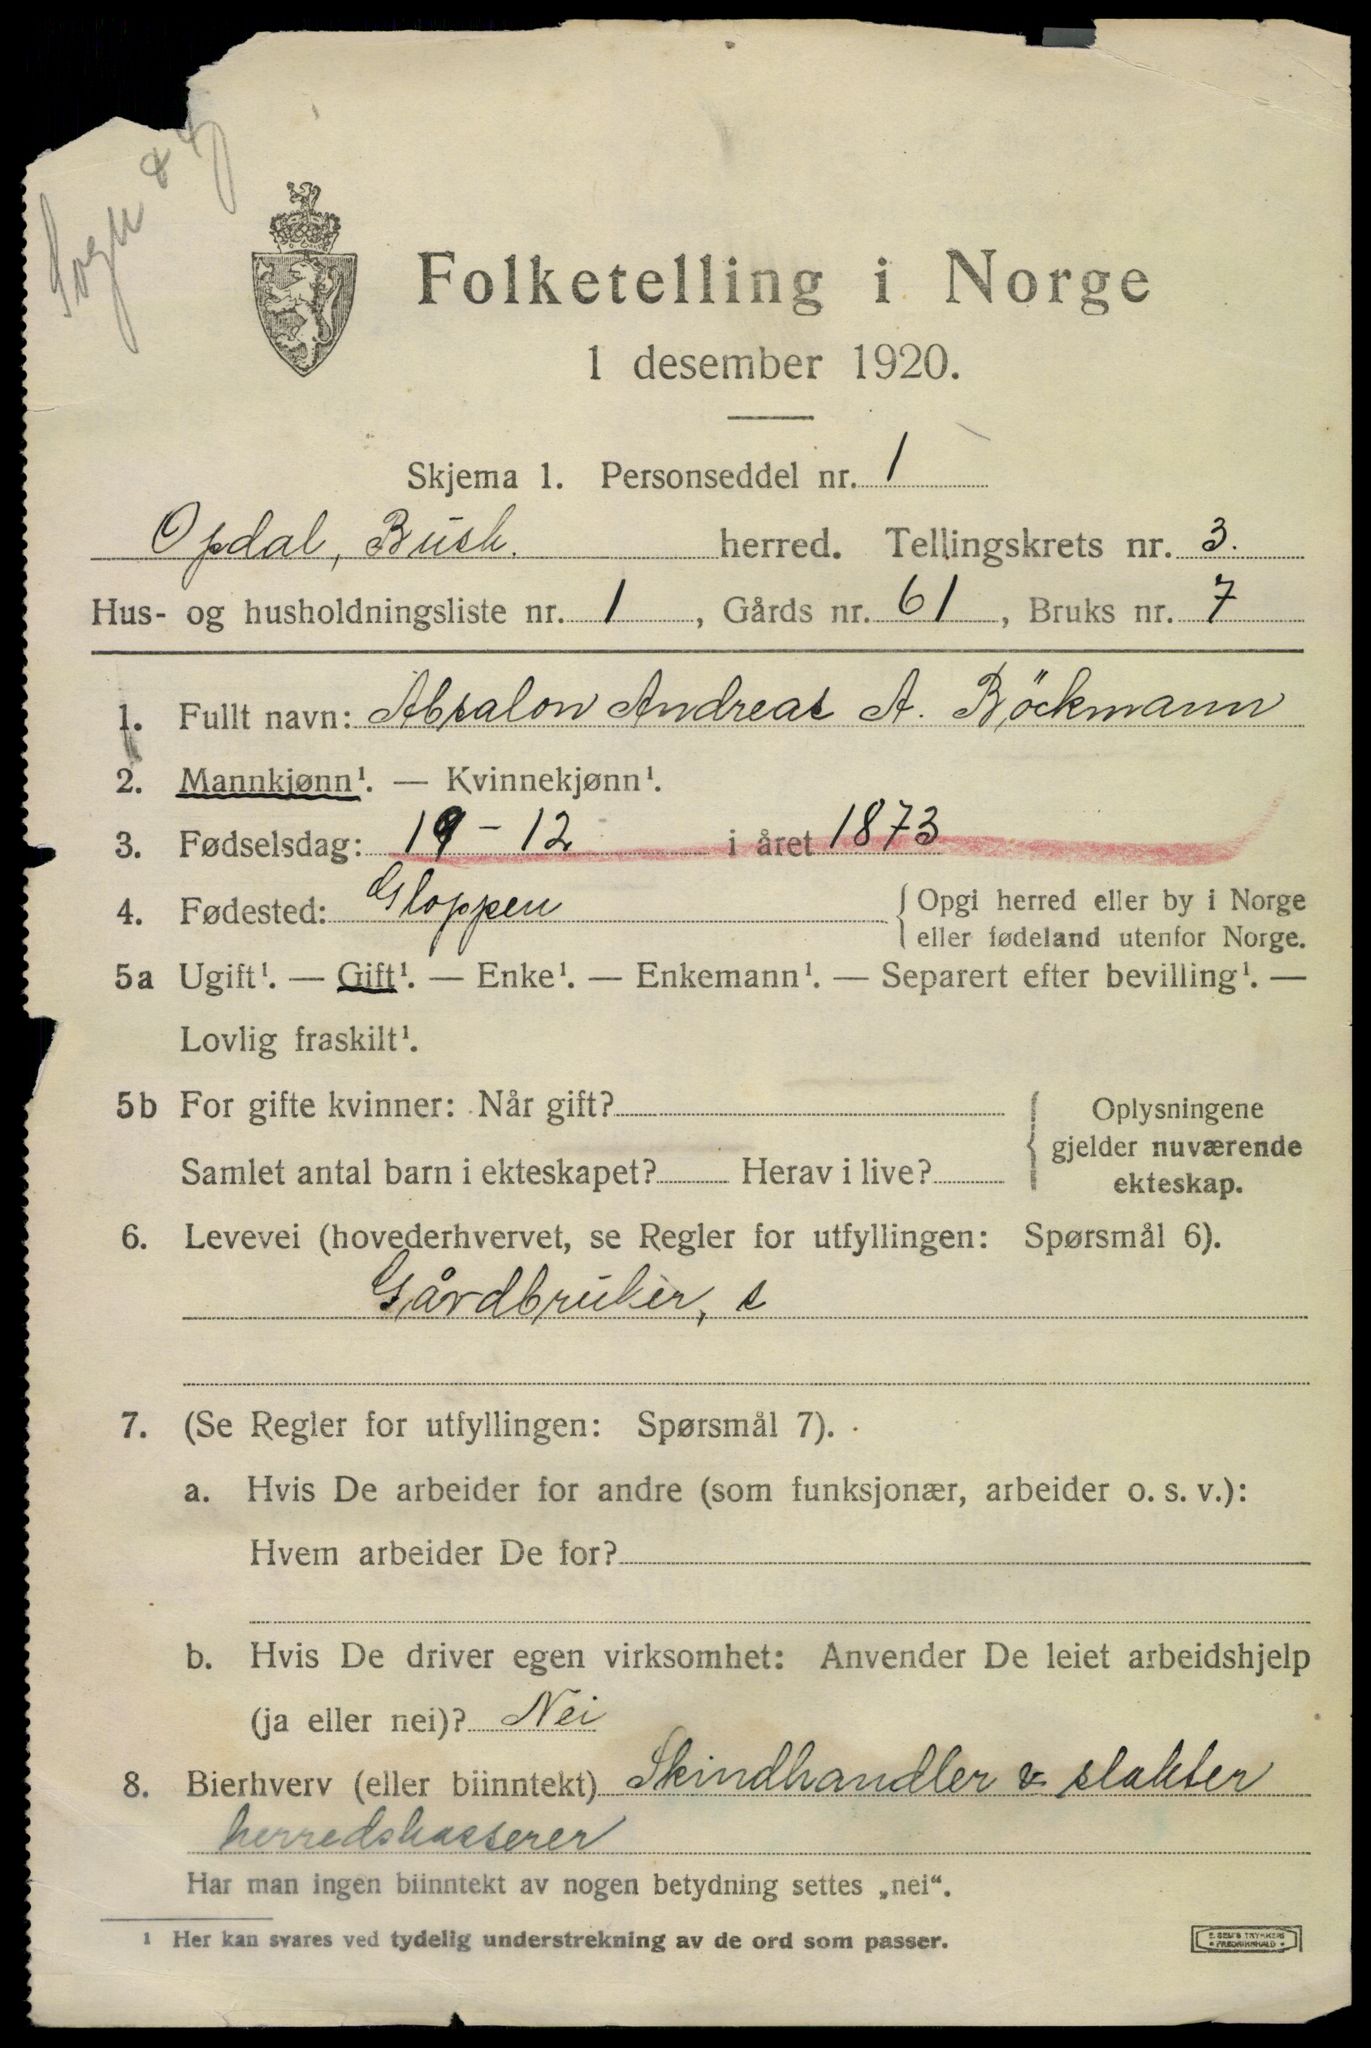 Sogn & Fj
Folketelling i Norge
1 desember 1920.
Skjema 1. Personseddel nr. 1
Opdal, Busk. herred. Tellingskrets nr. 3.
Hus- og husholdningsliste nr. 1, Gårds nr. 61, Bruks nr. 7
1. Fullt navn: Absalon Andreas A. Böckmann
2. Mannkjønn¹. — Kvinnekjønn¹.
3. Fødselsdag: 19 - 12 i året 1873
4. Fødested: Gloppen
{ Opgi herred eller by i Norge
eller fødeland utenfor Norge.
5a Ugift¹. — Gift¹. — Enke¹. — Enkemann¹. — Separert efter bevilling¹. —
Lovlig fraskilt¹.
5b For gifte kvinner: Når gift?
Samlet antal barn i ekteskapet? Herav i live?
{ Oplysningene
gjelder nuværende
ekteskap.
6. Levevei (hovederhvervet, se Regler for utfyllingen: Spørsmål 6).
Gårdbruker, s
7. (Se Regler for utfyllingen: Spørsmål 7).
a. Hvis De arbeider for andre (som funksjonær, arbeider o. s. v.):
Hvem arbeider De for?
b. Hvis De driver egen virksomhet: Anvender De leiet arbeidshjelp
(ja eller nei)? Nei
8. Bierhverv (eller biinntekt) Skindhandler & slakter
herredskasserer
Har man ingen biinntekt av nogen betydning settes „nei“.
¹ Her kan svares ved tydelig understrekning av de ord som passer.
E. SEM'S TRYKKERI
• FREDRIKSHALD •